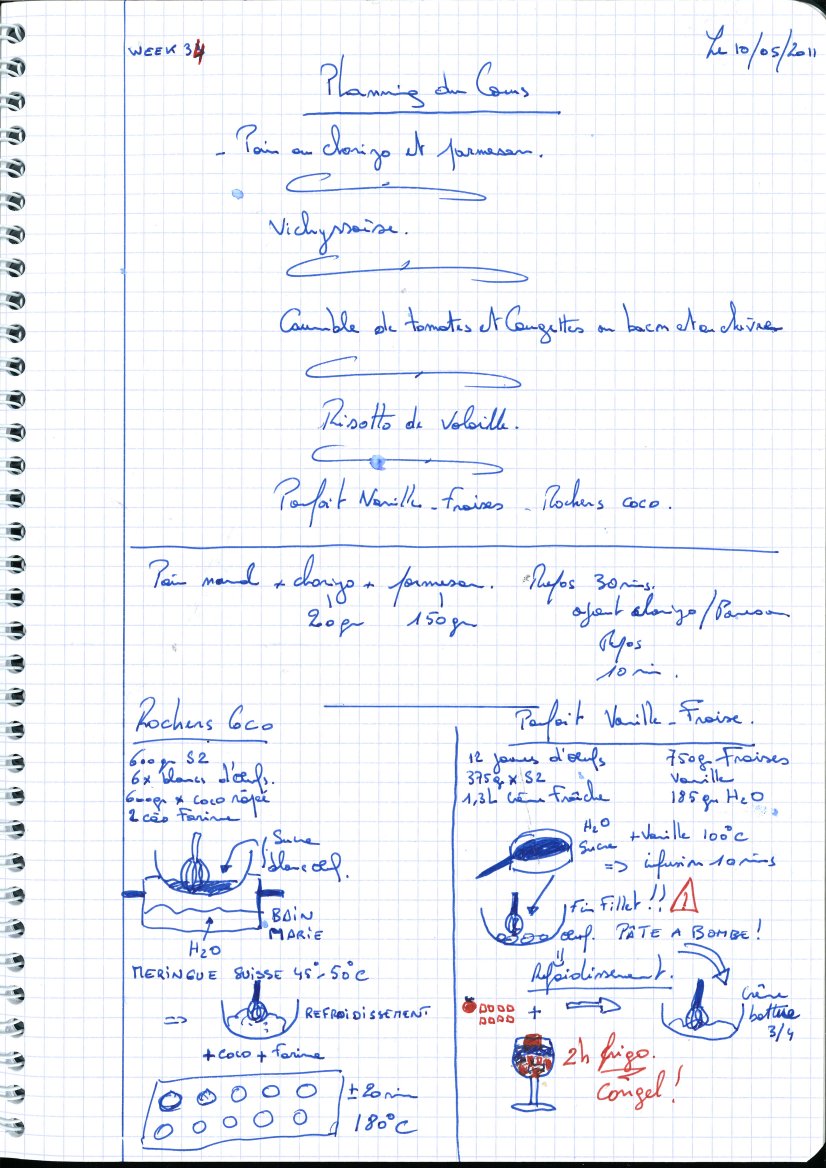 WEEK 34
Le 10/05/2011
Planning du Cours
- Pain au chorizo et parmesan.
Vichyssoise.
Crumble de tomates et Courgettes au bacon et au chèvre
Risotto de Volaille.
Parfait Vanille - Fraises - Rochers coco.
Pain nand + chorizo + parmesan. Repos 30 mins.
20gr 150gr
ajout chorizo/Parmesan
Repos
10 min.
Rochers Coco
600gr S2
6x blancs d'œufs.
600gr x coco râpé
2 càs Farine
Sucre
blanc œuf.
BAIN
MARIE
H2O
MERINGUE SUISSE 45°-50°C
=> REFROIDISSEMENT
+ coco + farine
± 20 min
180°C
Parfait Vanille - Fraise.
12 jaunes d'œufs 750gr Fraises
375gr x S2 Vanille
1,3L Crème Fraîche 185gr H2O
H2O
Sucre
+ Vanille 100°C
=> infusion 10 mins
Fin Fillet !! !
œuf. PÂTE A BOMBE !
Refroidissement.
+
Crème
battue
3/4
2h frigo.
Congel !